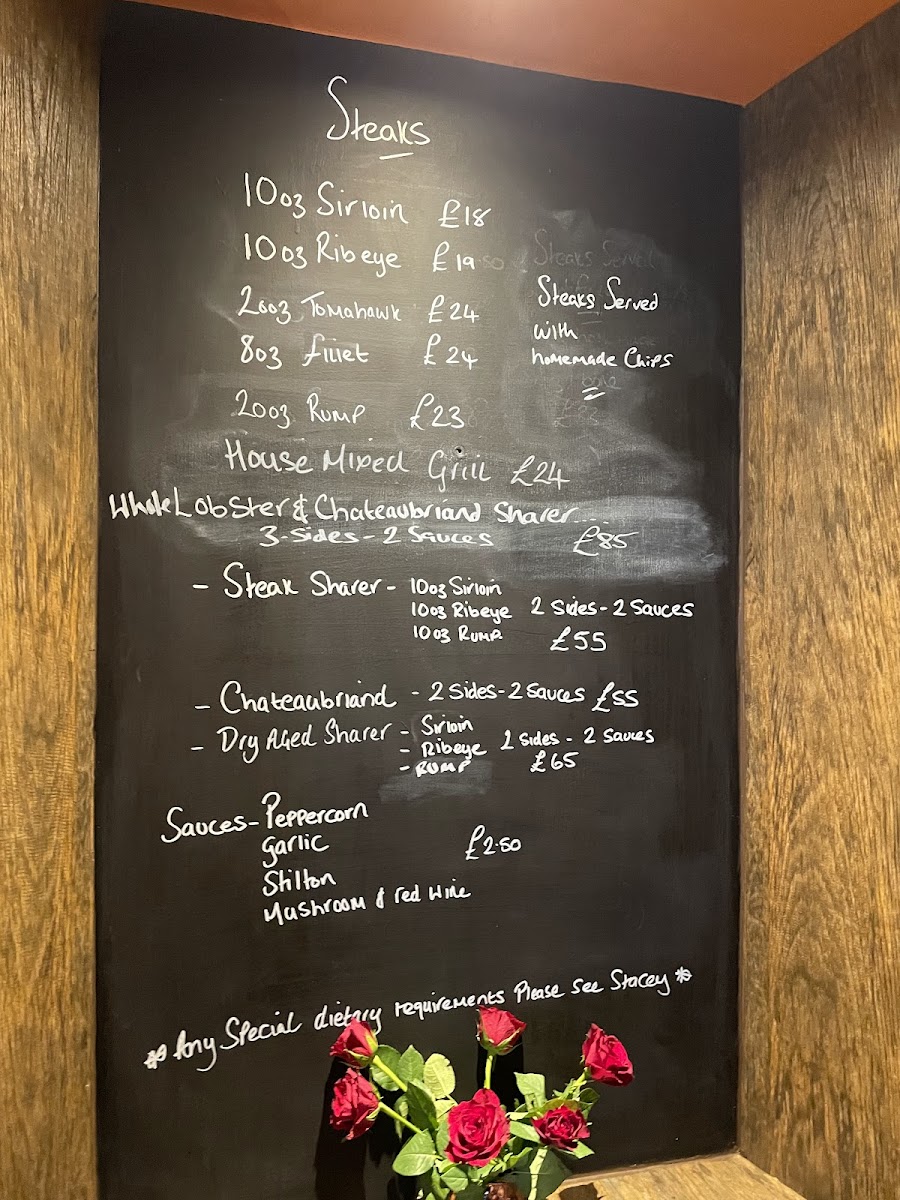 Steaks
10oz Sirloin £18
10oz Ribeye £19.50
20oz Tomahawk £24
8oz fillet £24
Steaks Served
with
homemade Chips
20oz Rump £23
House Mixed Grill £24
Whole Lobster & Chateaubriand Sharer...
3-Sides-2 Sauces £85
- Steak Sharer - 10oz Sirloin
10oz Ribeye 2 Sides-2 Sauces
10oz Rump £55
- Chateaubriand - 2 Sides-2 Sauces £55
- Dry Aged Sharer - Sirloin
- Ribeye 2 Sides - 2 Sauces
- Rump £65
Sauces- Peppercorn
Garlic £2.50
Stilton
Mushroom & red wine
* Any Special dietary requirements Please see Stacey *